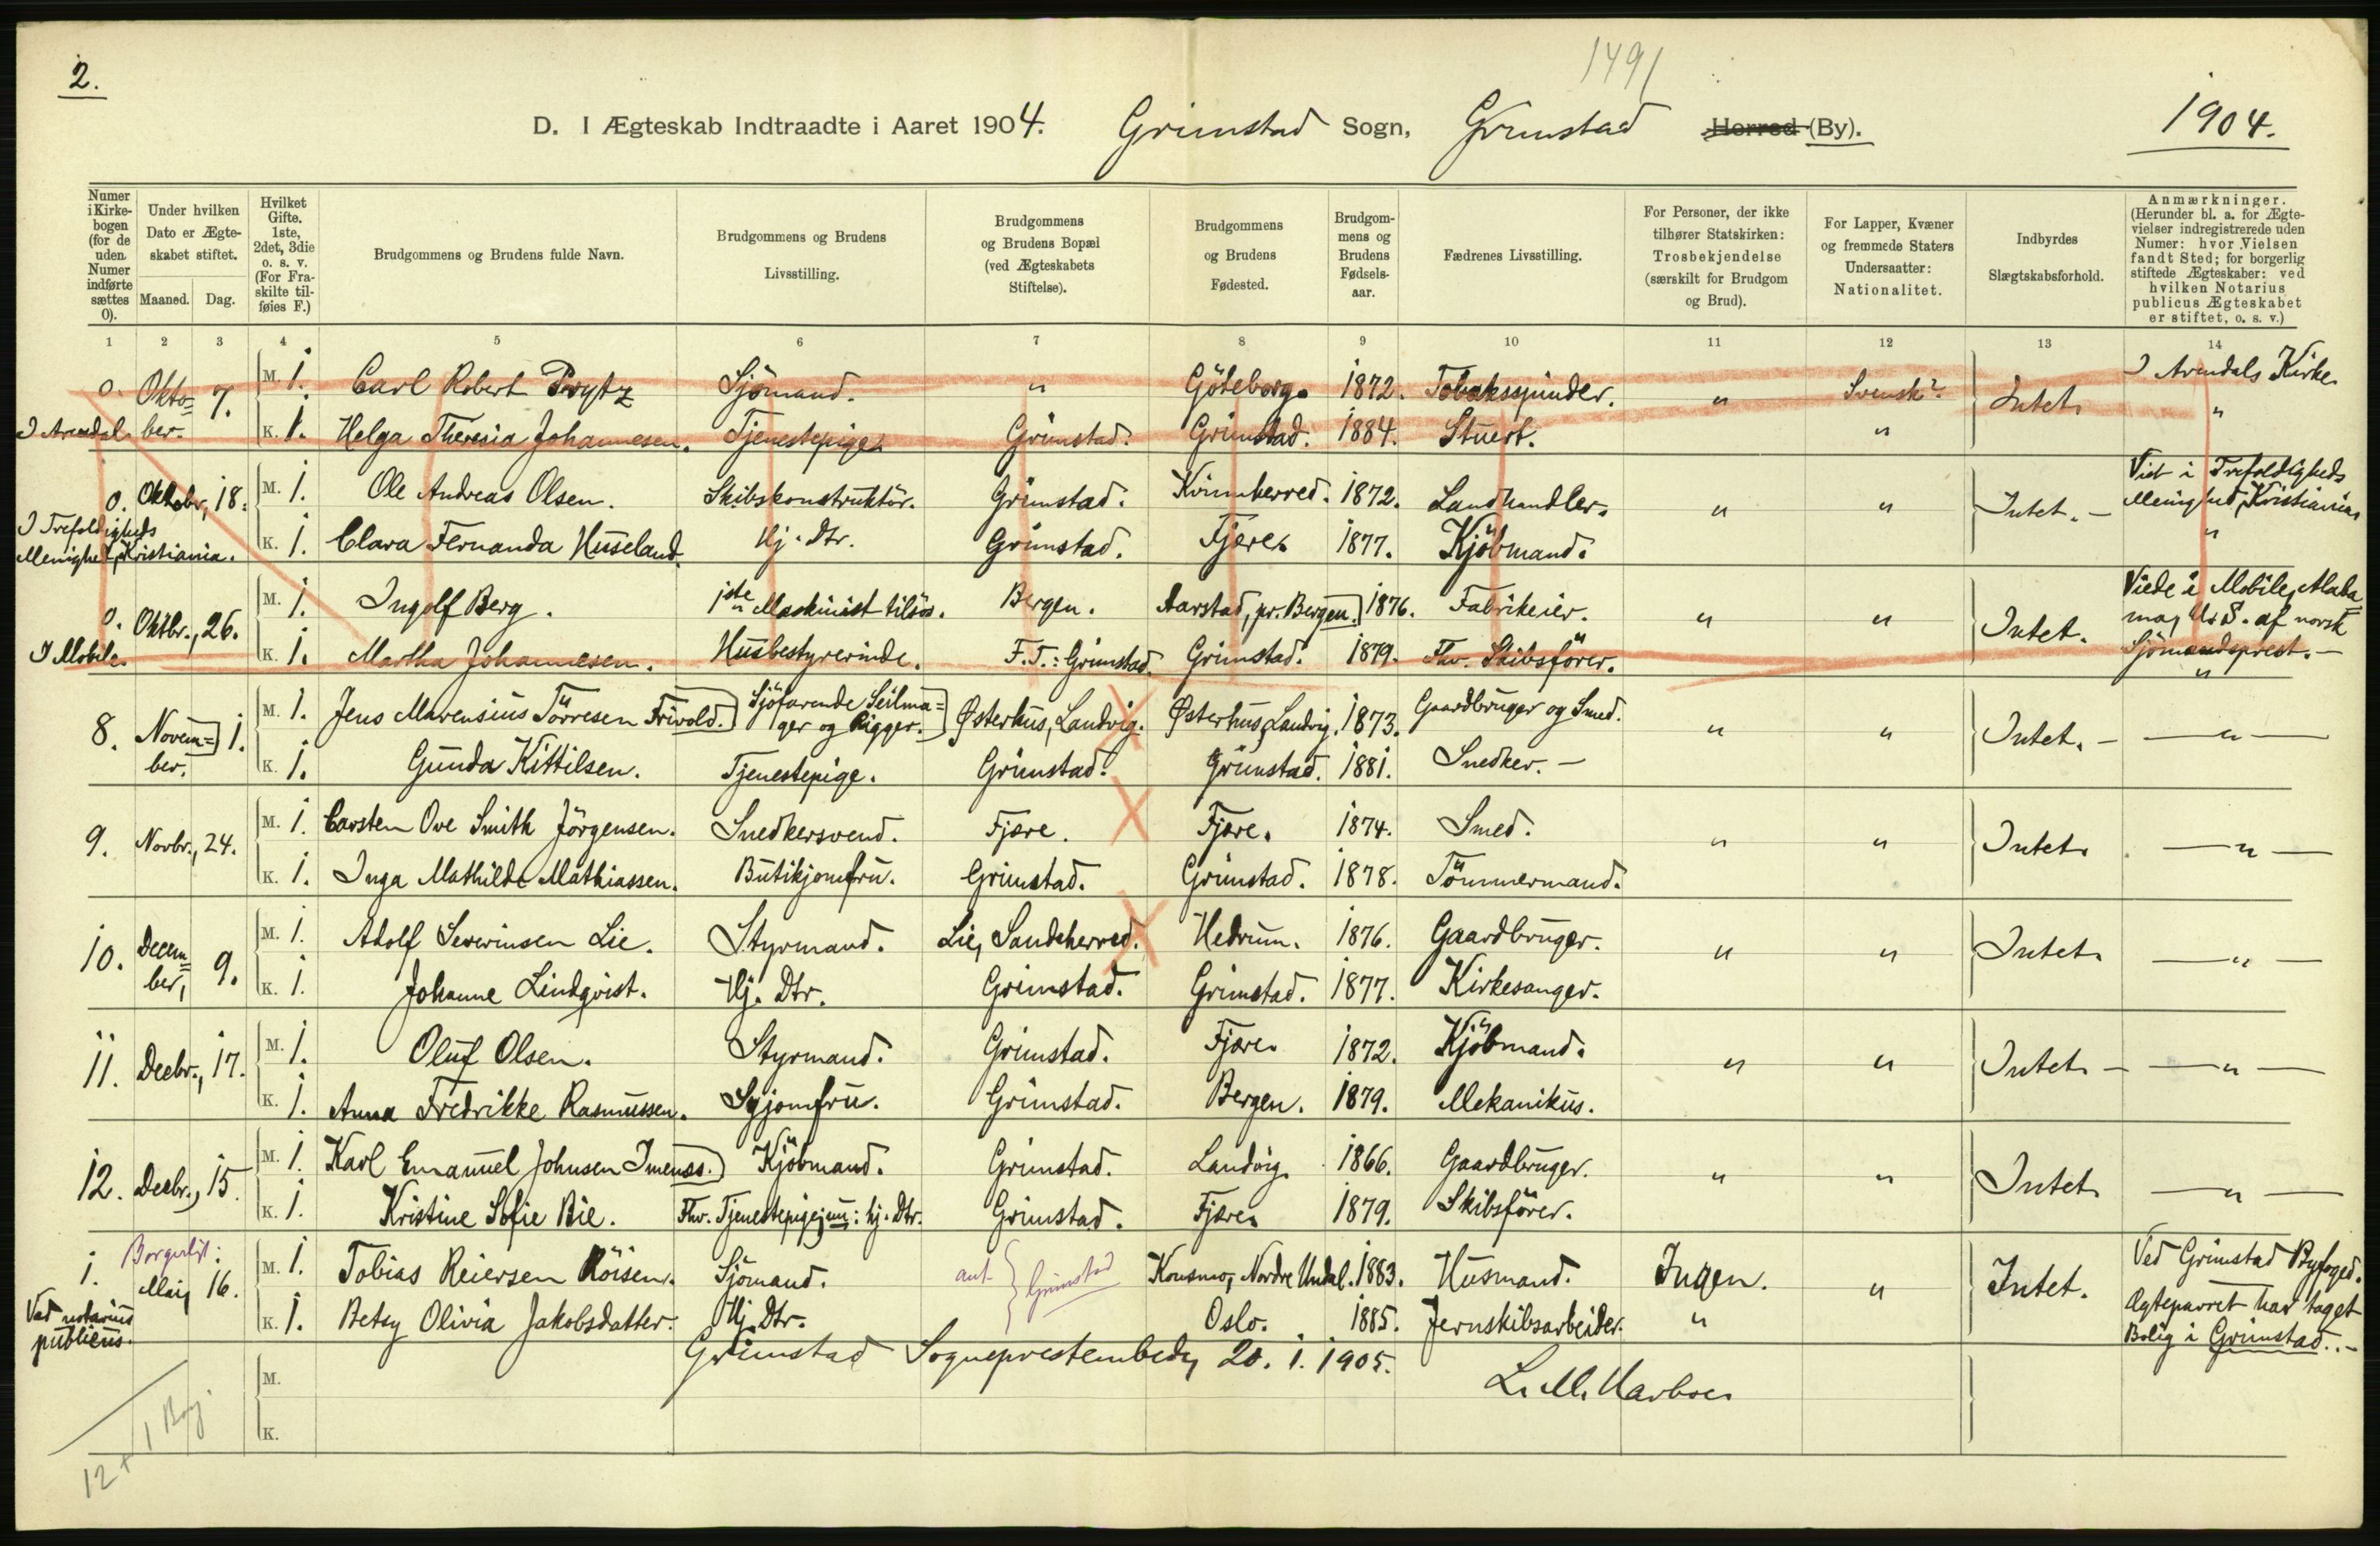 2.
1491
D. I Ægteskab Indtraadte i Aaret 1904. Grimstad Sogn, Grimstad Herred (By). 1904.
Numer i Kirkebogen (for de uden Numer indførte sættes 0).
Under hvilken Dato er Ægteskabet stiftet.
Maaned. Dag.
Hvilket Gifte. 1ste, 2det, 3die o. s. v. (For Fraskilte tilføies F.)
Brudgommens og Brudens fulde Navn.
Brudgommens og Brudens Livsstilling.
Brudgommens og Brudens Bopæl (ved Ægteskabets Stiftelse).
Brudgommens og Brudens Fødested.
Brudgommens og Brudens Fødselsaar.
Fædrenes Livsstilling.
For Personer, der ikke tilhører Statskirken: Trosbekjendelse (særskilt for Brudgom og Brud).
For Lapper, Kvæner og fremmede Staters Undersaatter: Nationalitet.
Indbyrdes Slægtskabsforhold.
Anmærkninger. (Herunder bl. a. for Ægtevielser indregistrerede uden Numer: hvor Vielsen fandt Sted; for borgerlig stiftede Ægteskaber: ved hvilken Notarius publicus Ægteskabet er stiftet, o. s. v.)
1 2 3 4 5 6 7 8 9 10 11 12 13 14
0. Oktober. 7. M. 1. Carl Robert Prytz Sjömand. " Göteborg. 1872. Tobaksspinder. " Svensk? Intet. I Arendals Kirke.
I Arendal. K. 1. Helga Theresia Johannesen. Tjenestepige. Grimstad. Grimstad. 1884. Stuert. " "
0. Oktober, 18. M. 1. Ole Andreas Olsen. Skibskonstruktör. Grimstad. Kvinnherred. 1872. Landhandler. " " Intet. - Viet i Trefoldigheds Menighed, Kristiania.
I Trefoldigheds Menighed, Kristiania. K. 1. Clara Fernanda Huseland. Hj. Dtr. Grimstad. Fjære. 1877. Kjöbmand. "
0. Oktbr., 26. M. 1. Ingolf Berg. 1ste Maskinist tilsös. Bergen. Aarstad, pr. Bergen. 1876. Fabrikeier. " " Intet. Viede i Mobile, Alabama, U. S. af norsk Sjömandsprest. -
I Mobile. K. 1. Martha Johannesen. Husbestyrerinde. F. T.: Grimstad. Grimstad. 1879. Fhv. Skibsförer. "
8. November. 1. M. 1. Jens Marensius Törresen Frivold. Sjöfarende Seilmager og Rigger. Østerhus, Landvig. Østerhus, Landvig. 1873. Gaardbruger og Smed. " " Intet. - — " —
K. 1. Gunda Kittilsen. Tjenestepige. Grimstad. Grimstad. 1881. Snedker. -
9. Novbr., 24. M. 1. Carsten Ove Smith Jörgensen. Snedkersvend. Fjære. Fjære. 1874. Smed. " " Intet. — " —
K. 1. Inga Mathilde Mathiassen. Butikjomfru. Grimstad. Grimstad. 1878. Tömmermand.
10. December, 9. M. 1. Adolf Severinsen Lie. Styrmand. Lie, Sandeherred. Hedrum. 1876. Gaardbruger. " " Intet. — " —
K. 1. Johanne Lindqvist. Hj. Dtr. Grimstad. Grimstad. 1877. Kirkesanger.
11. Decbr., 17. M. 1. Oluf Olsen. Styrmand. Grimstad. Fjære. 1872. Kjöbmand. " " Intet. - — " —
K. 1. Anna Fredrikke Rasmussen. Syjomfru. Grimstad. Bergen. 1879. Mekanikus.
12. Decbr., 15. M. 1. Karl Emanuel Johnsen Imenæs. Kjöbmand. Grimstad. Landvig. 1866. Gaardbruger. " " Intet. — " —
K. 1. Kristine Sofie Bie. Fhv. Tjenestepige; nu: hj. Dtr. Grimstad. Fjære. 1879. Skibsförer.
Borgerligt:
1. Mai, 16. M. 1. Tobias Reiersen Röisen. Sjömand. ant. Grimstad Konsmo, Nordre Undal. 1883. Husmand. Ingen. " Intet. Ved Grimstad Byfoged. Ægteparret har taget Bolig i Grimstad. . -
Ved notarius publicus. K. 1. Betsy Olivia Jakobsdatter. Hj. Dtr. Oslo. 1885. Jernskibsarbeider. "
Grimstad Sogneprestembede, 20. 1. 1905.
L. M. Harboe
M.
K.
12 + 1 Borj.